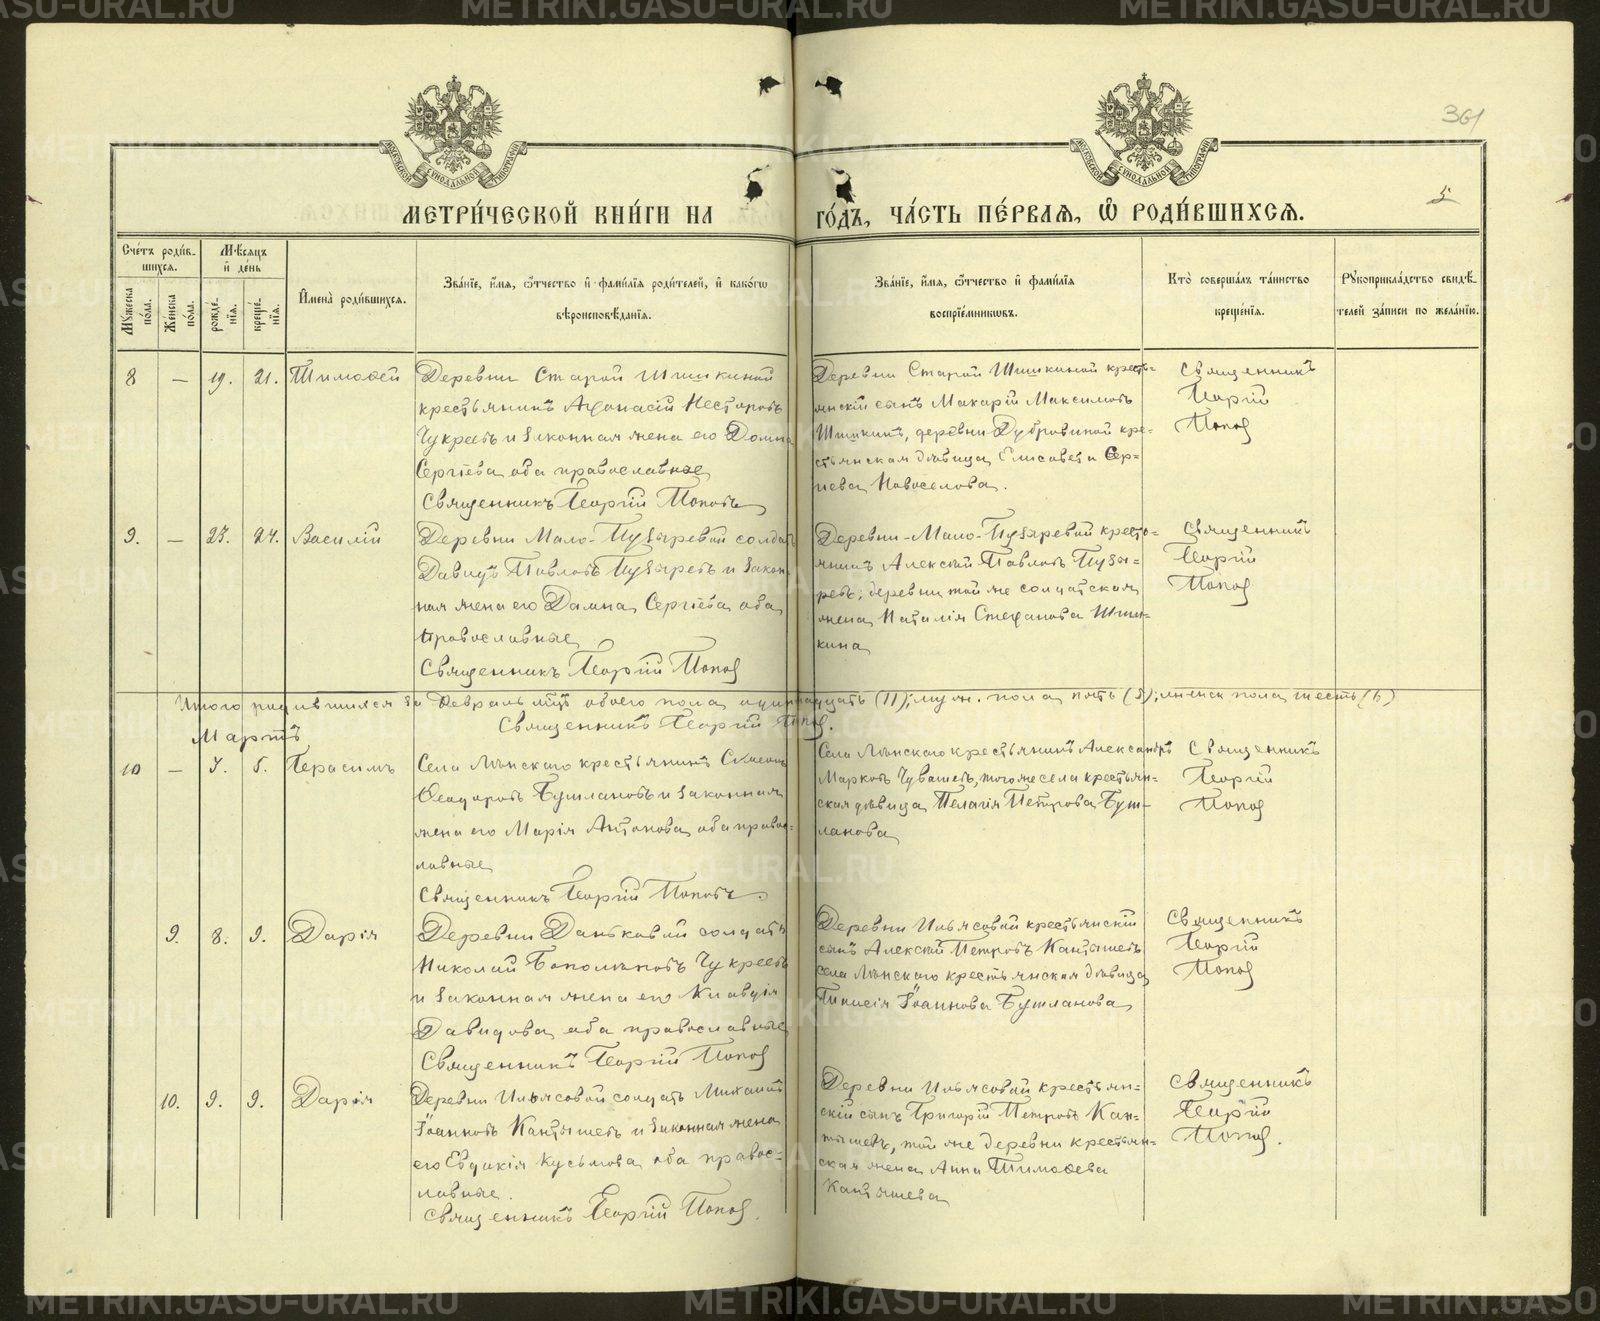 METRIKI.GASO-URAL.RU
361
5
МОСКОВСКОЙ СѴНОДАЛЬНОЙ ТИПОГРАФІИ
МОСКОВСКОЙ СѴНОДАЛЬНОЙ ТИПОГРАФІИ
МЕТРИ́ЧЕСКОЙ КНИ́ГИ НА ГО́ДЪ, ЧА́СТЬ ПЕ́РВАѦ, Ѽ РОДИ́ВШИХСѦ.
Сче́тъ роди́в-
шихся.
Мꙋ́жеска по́ла.
Же́нска по́ла.
Мѣ́сяцъ
и҆ де́нь
рожде́-
нїя.
креще́-
нїя.
И҆мена̀ роди́вшихся.
Зва́нїе, и҆́мя, ѻ҆́тчество и҆ фами́лїя роди́телей, и҆ како́гѡ
вѣроисповѣ́данїя.
Зва́нїе, и҆́мя, ѻ҆́тчество и҆ фами́лїя
воспрїе́мникѡвъ.
Кто̀ соверша́лъ та́инство
креще́нїя.
Рꙋкоприкла́дство свидѣ́-
телей за́писи по жела́нїю.
8 — 19. 21. Тимоѳей
Деревни Старой Шишкиной
крестьянинъ Аѳонасій Несторовъ
Чукреевъ и законная жена его Домна
Сергіева, оба православные
Священникъ Георгій Поповъ
Деревни Старой Шишкиной кресть-
янскій сынъ Макарій Максимовъ
Шишкинъ, деревни Дубровиной кре-
стьянская дѣвица Елисавета Сер-
гіева Новоселова.
Священникъ
Георгій
Поповъ
9. — 23. 24. Василій
Деревни Мало-Пузыревой солдатъ
Давидъ Павловъ Пузыревъ и закон-
ная жена его Домна Сергіева оба
православные
Священникъ Георгій Поповъ
Деревни Мало-Пузыревой кресть-
янинъ Алексій Павловъ Пузы-
ревъ; деревни той же солдатская
жена Наталія Стефанова Шиш-
кина
Священникъ
Георгій
Поповъ
Итого родившихся за Февраль мцъ обоего пола одиннадцать (11); муж. пола пять (5); женск пола шесть (6)
Священникъ Георгій Поповъ.
Мартъ
10 — 5. Герасимъ
крестьянинъ
Ѳеодоровъ Бутлановъ и законная
жена его Марія Антонова, оба правос-
лавные
Священникъ Георгій Поповъ.
Села крестьянинъ Александръ
Марковъ Чувашевъ, того же села крестьян-
ская дѣвица Пелагія Петрова Бут-
ланова
Священникъ
Георгій
Поповъ
9. 8. 9. Дарія
Деревни Даньковой солдатъ
Николай Чукреевъ
и законная жена его Клавдія
Давидова, оба православные
Священникъ Георгій Поповъ
Деревни Ильясовой крестьянскій
сынъ Алексій Петровъ Кантышевъ
села крестьянская дѣвица
Таисія Іоаннова Бутланова
Священникъ
Георгій
Поповъ
10. 9. 9. Дарія
Деревни Ильясовой солдатъ Михаилъ
Іоанновъ Кантышевъ и законная жена
его Евдокія Кузьмова, оба правос-
лавные.
Священникъ Георгій Поповъ.
Деревни Ильясовой крестьян-
скій сынъ Григорій Петровъ Кан-
тышевъ, той же деревни крестьян-
ская жена Анна Тимоѳеева
Кантышева
Священникъ
Георгій
Поповъ.